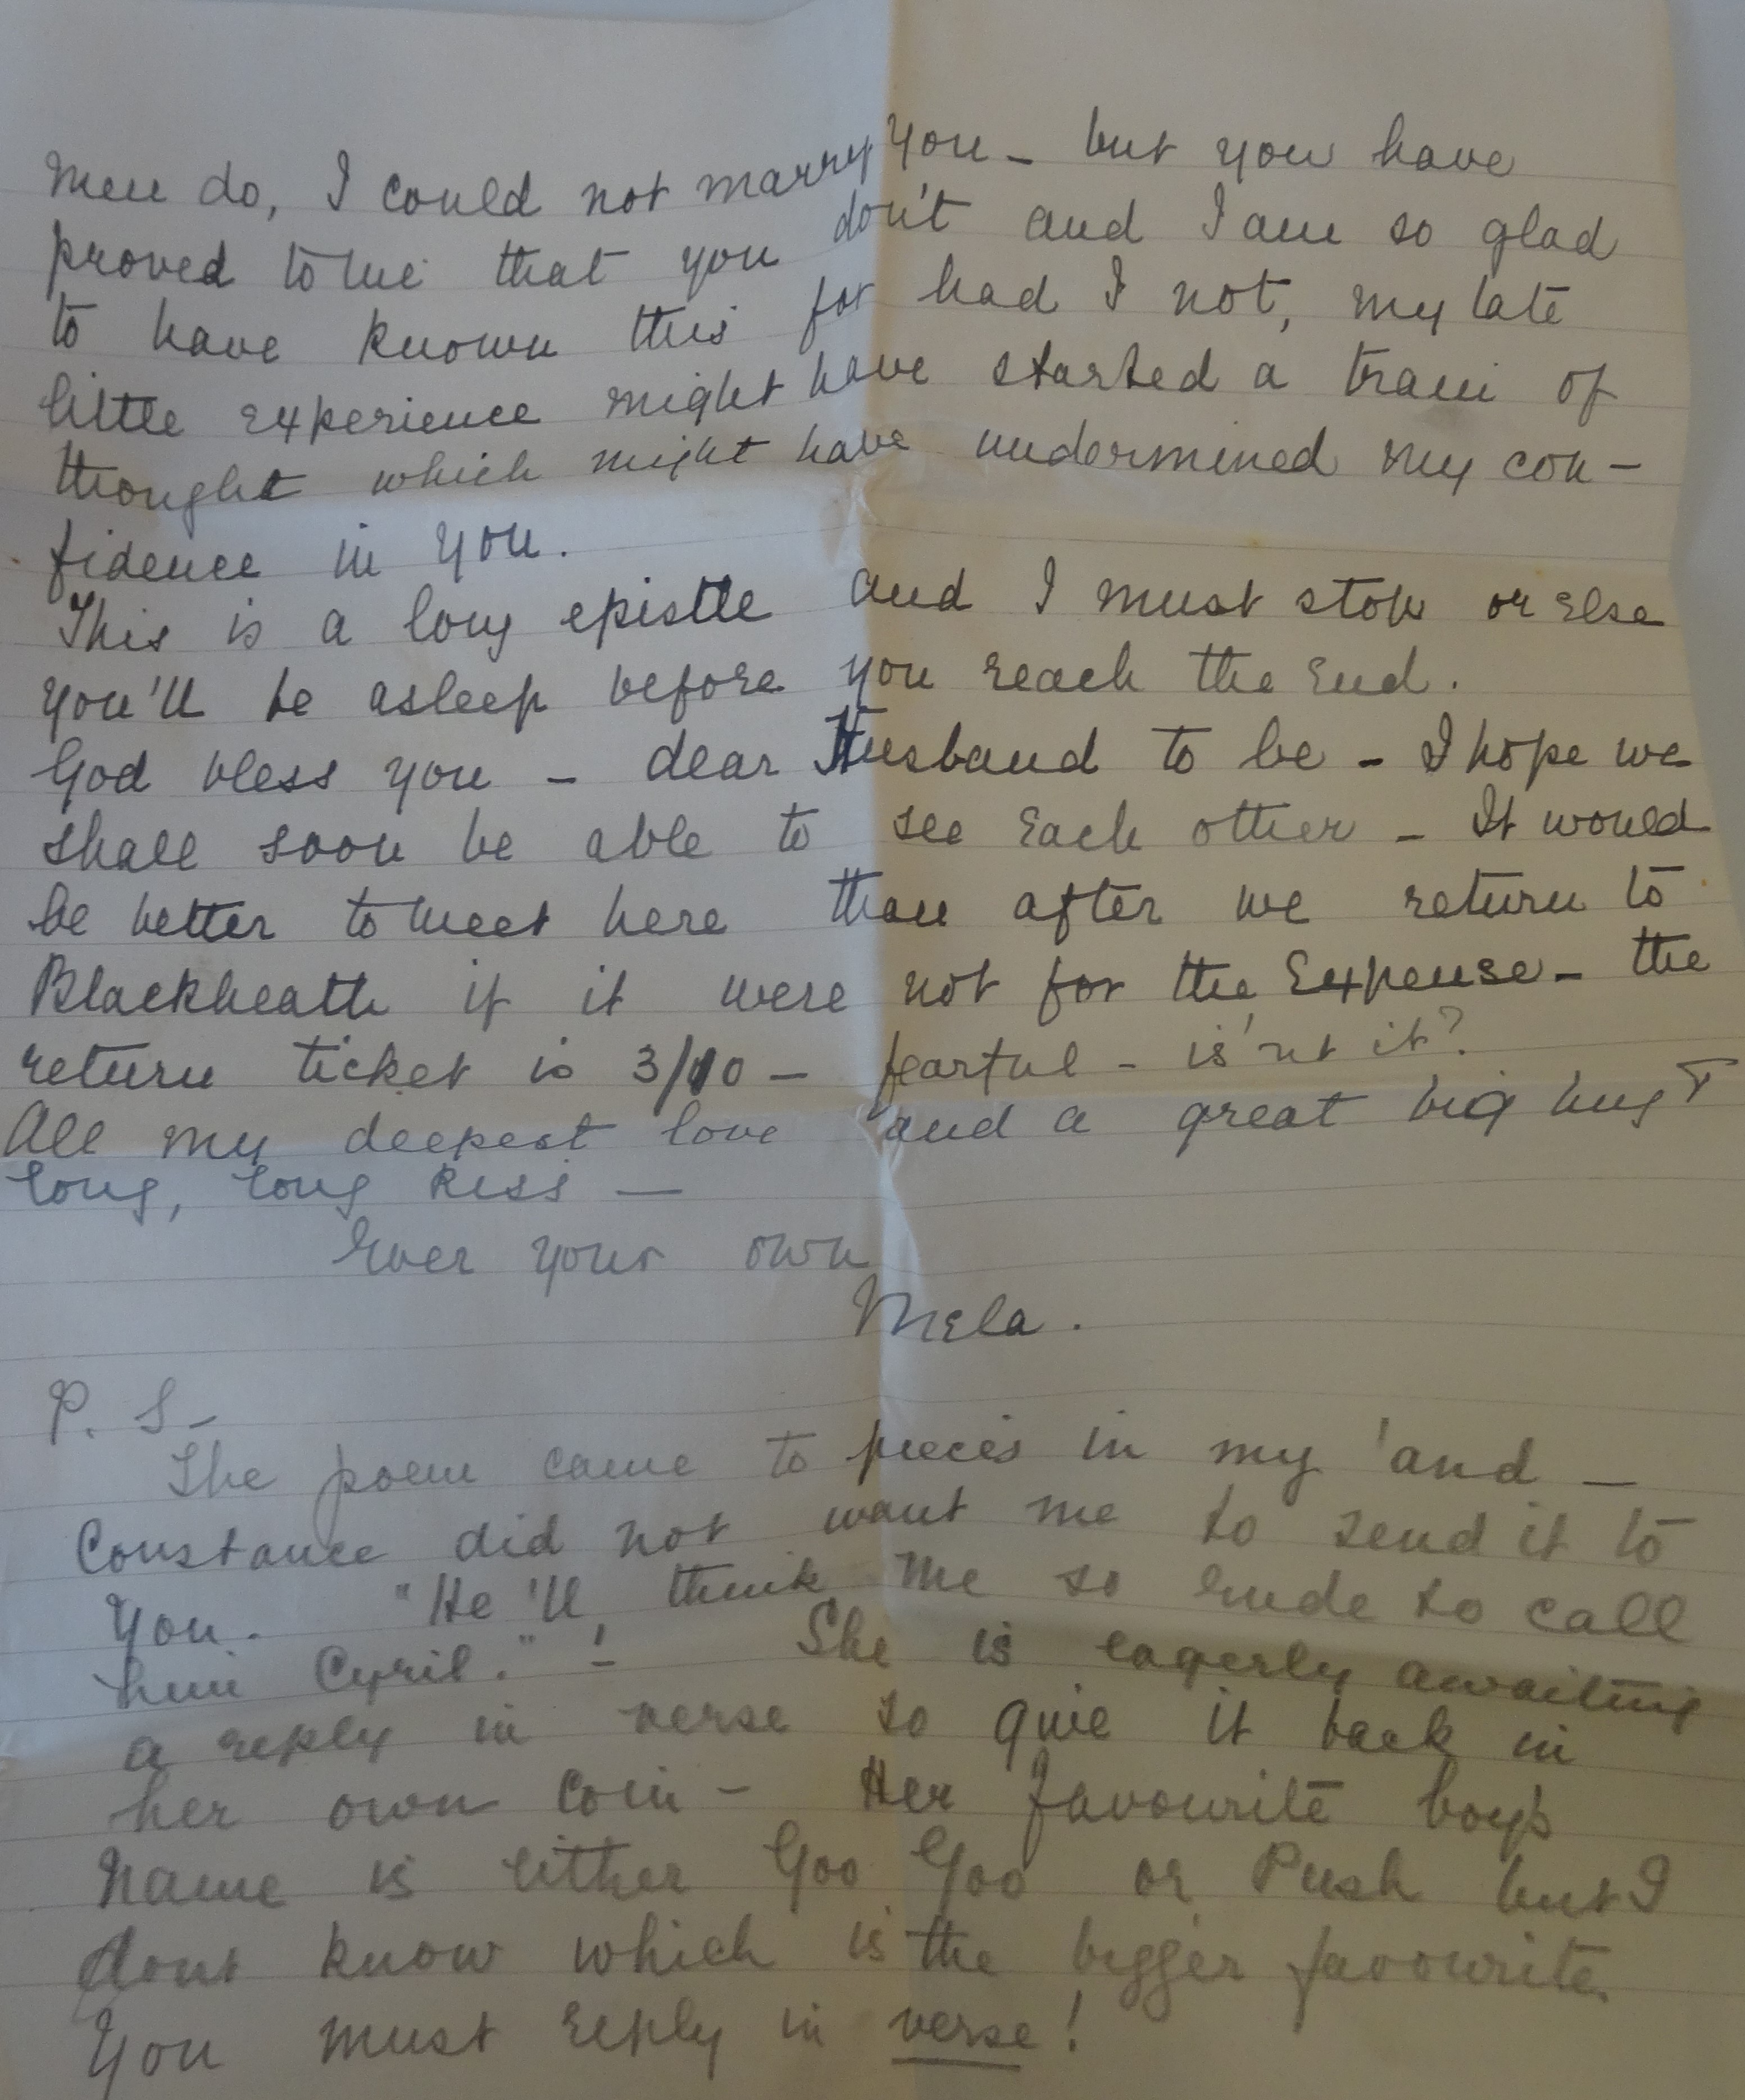 men do, I could not marry you - but you have
proved to me that you don't and I am so glad
to have known this for had I not, my late
little experience might have started a train of
thought which might have undermined my con-
fidence in you.
This is a long epistle and I must stop or else
you'll be asleep before you reach the end.
God bless you - dear Husband to be - I hope we
shall soon be able to see each other - It would
be better to meet here than after we return to
Blackheath if it were not for the expense - the
return ticket is 3/10 - fearful - is'nt it?
All my deepest love and a great big hug &
long, long kiss -
Ever your own
Mela.
P. S -
The poem came to pieces in my 'and -
Constance did not want me to send it to
you. "He'll think me so rude to call
him Cyril." ! She is eagerly awaiting
a reply in verse so give it back in
her own coin - Her favourite boy's
name is either Goo Goo or Push but I
dont know which is the bigger favourite.
You must reply in verse!